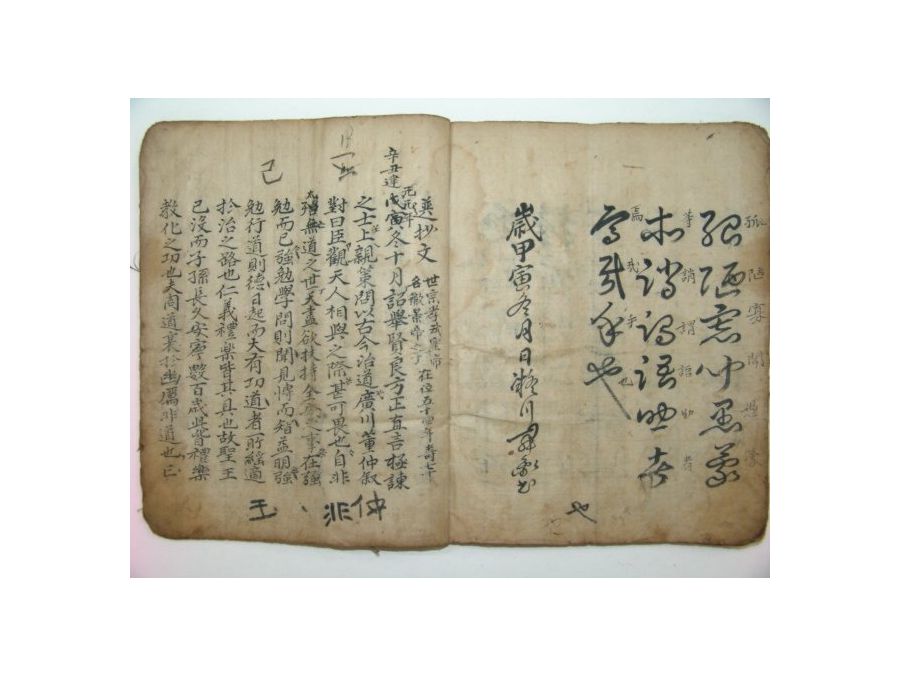 孤陋寡聞愚蒙
孤陋寡聞愚蒙
等誚謂語助者
等誚謂語助者
焉哉乎也
焉哉乎也
歲甲寅冬月日凝川
也
抄文 世宗孝武皇帝
名徹景帝之子 在位五十四年壽七十
辛丑建元元年 戊寅冬十月詔舉賢良方正直言極諫
之士上親策問以古今治道廣川董仲舒
對曰臣觀天人相與之際甚可畏也自非
太無道之世天盡欲扶持全安之事在强
勉而已强勉學問則聞見博而智益明强
勉行道則德日起而大有功道者所繇適
於治之路也仁義禮樂皆其具也故聖王
已沒而子孫長久安寧數百歲此皆禮樂
教化之功也夫周道衰於幽厲非道也亡
己
仲 非 王